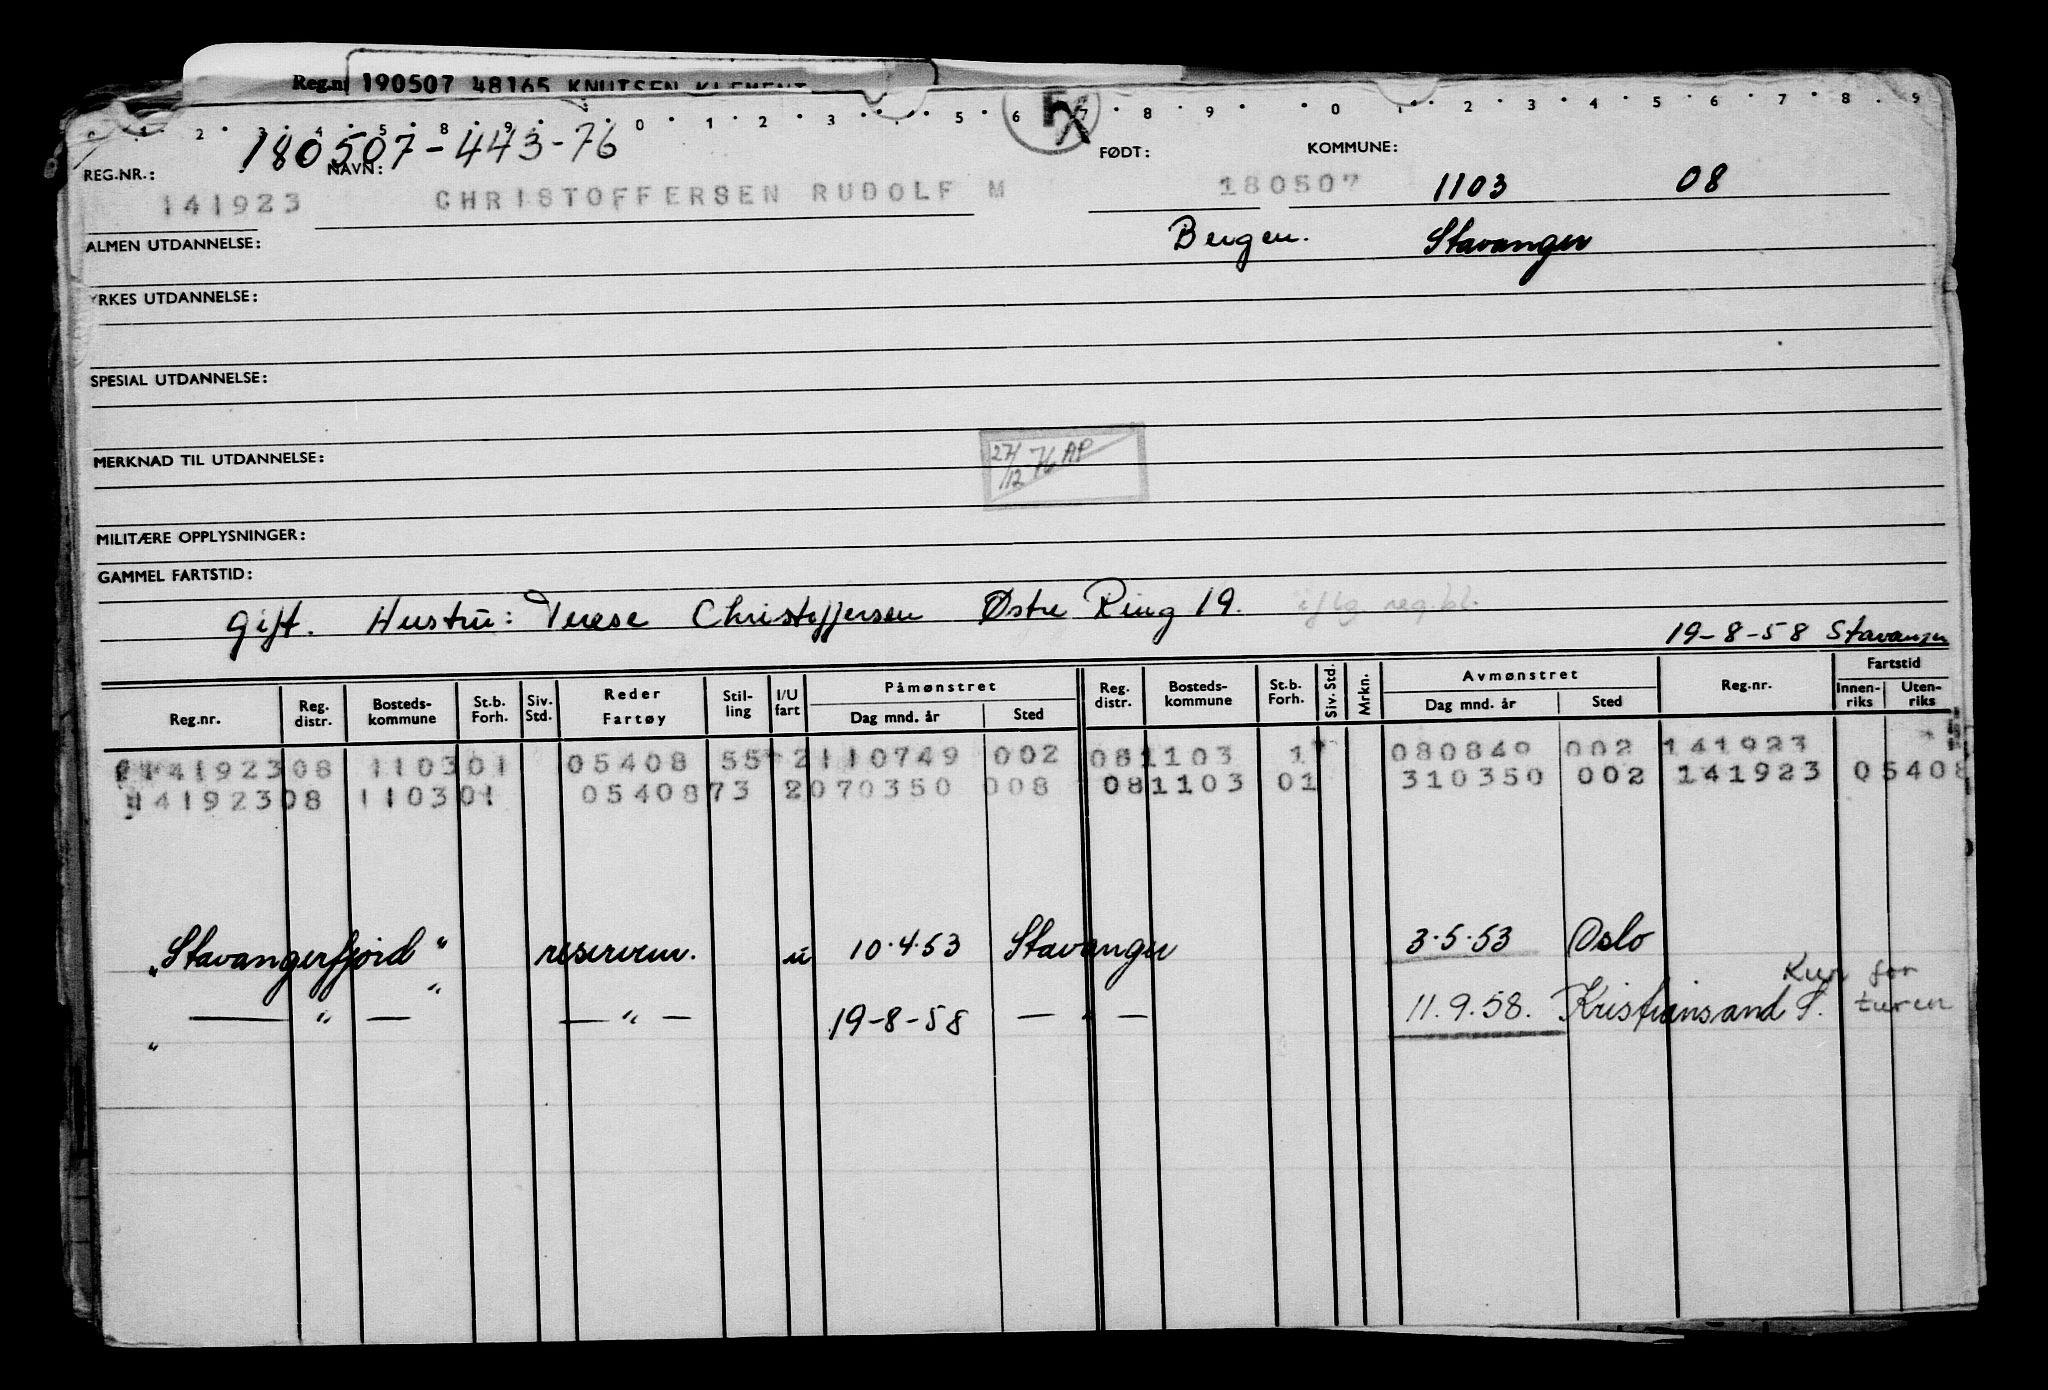 Reg.n 190507 48165 KNUTSEN KLEMENT
2 3 4 5 8 9 0 1 2 3 5 6 7 8 9 0 1 2 3 4 5 6 7 8 9
180507-443-76
REG.NR.: NAVN: FØDT: KOMMUNE:
141923 CHRISTOFFERSEN RUDOLF M 180507 1103 08
ALMEN UTDANNELSE: Bergen. Stavanger
YRKES UTDANNELSE:
SPESIAL UTDANNELSE:
MERKNAD TIL UTDANNELSE: 27/12-76 AP
MILITÆRE OPPLYSNINGER:
GAMMEL FARTSTID:
gift. Hustru: Terese Christoffersen Østre Ring 19. iflg. reg.bl.
19-8-58 Stavanger
Reg.nr. Reg. distr. Bosteds- kommune St.b. Forh. Siv. Std. Reder Fartøy Stil- ling I/U fart Påmønstret Dag mnd. år Sted Reg. distr. Bosteds- kommune St.b. Forh. Siv. Std. Mrkn. Avmønstret Dag mnd. år Sted Reg.nr. Fartstid Innen- riks Uten- riks
14192308 110301 05408 55 2 110749 002 081103 1 080849 002 141923
14192308 110301 0540873 2070350 008 081103 01 310350 002 141923 05408
"Stavangerfjord" reserven. u 10.4.53 Stavanger 3.5.53 Oslo
" — " — " — " — 19-8-58 — " — 11.9.58. Kristiansand S. Kun for turen